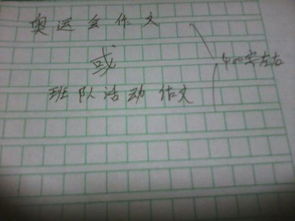 奥运会作文
或
班队活动作文
字左右